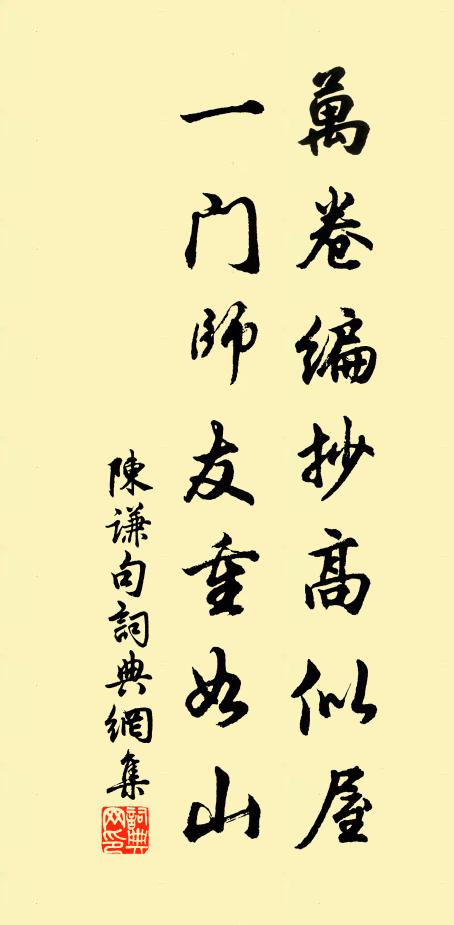 萬卷編抄高似屋
一门師友重如山
陳谦句詞典網集
詞典网印